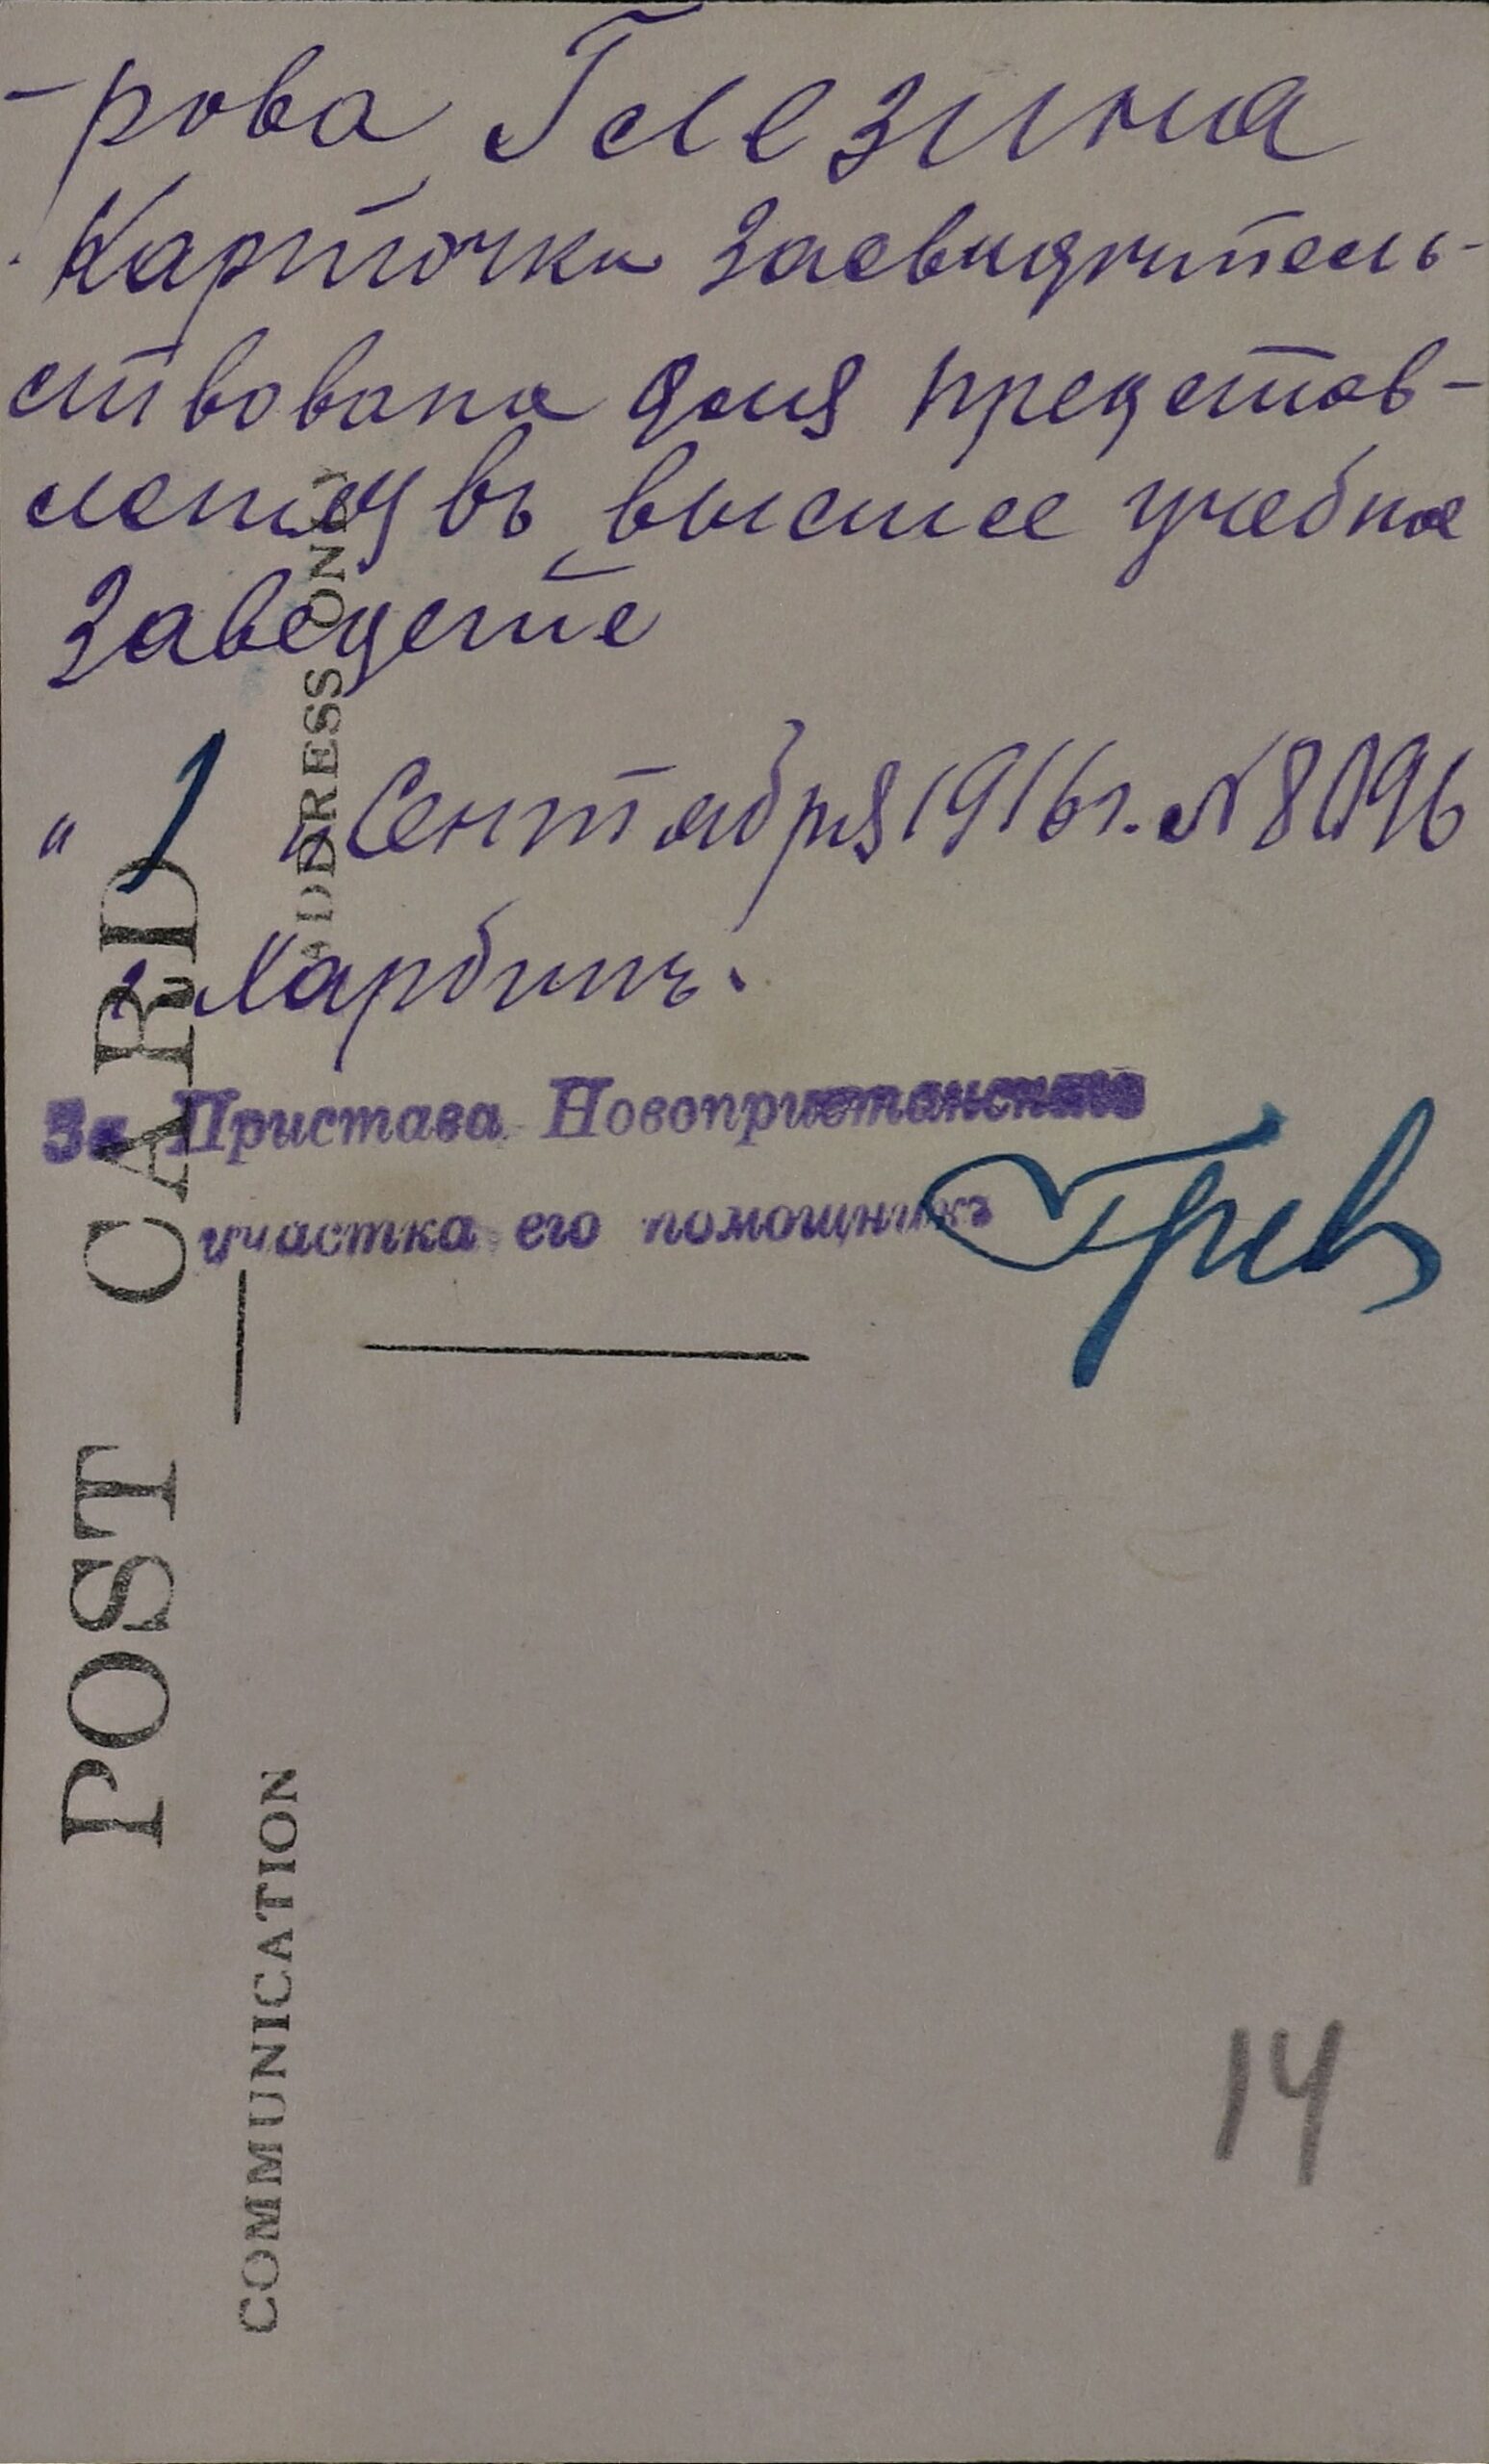 -рова Глезина
Карточка засвидѣтель-
ствована для представ-
ленія въ высшее учебное
заведеніе
"1" Сентября 1916 г. № 8096
г. Харбинъ.
За Пристава Новопристанскаго
участка его помощникъ
POST CARD
ADDRESS ONLY
COMMUNICATION
14